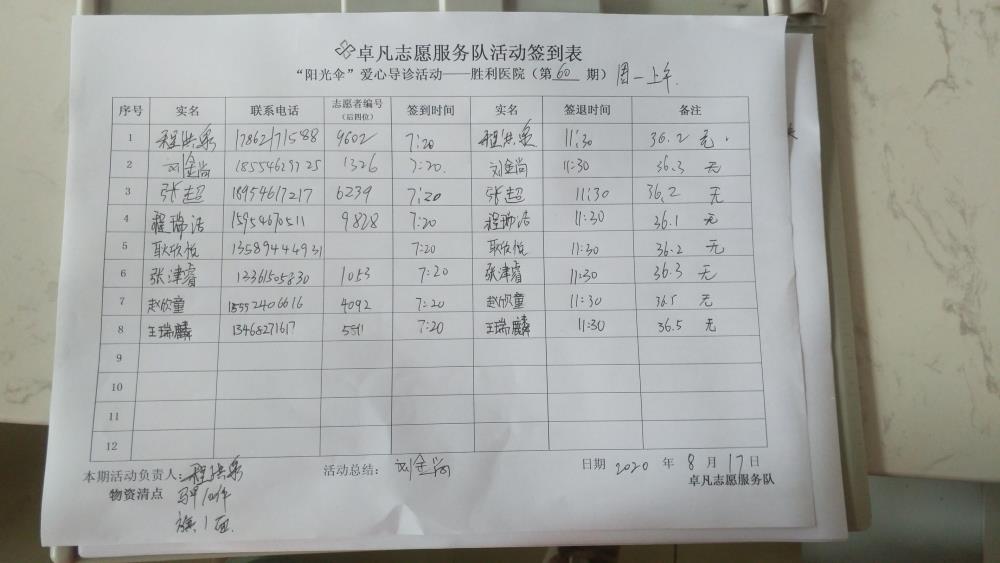 卓凡志愿服务队活动签到表
“阳光伞”爱心导诊活动——胜利医院（第 60 期） 周一上午.
序号 实名 联系电话 志愿者编号（后四位） 签到时间 实名 签退时间 备注
1 程洪泉 17862171588 9602 7:20 程洪泉 11:30 36.2 无.
2 刘金尚 18554629725 1326 7:20. 刘金尚 11:30 36.3 无
3 张超 18954617217 6239 7:20 张超 11:30 36.2 无
4 程瑞洁 15954670511 9828 7:20 程瑞洁 11:30 36.1 无
5 耿欣悦 13589444931 7:20 耿欣悦 11:30 36.2 无
6 张津睿 13361505830 1053 7:20 张津睿 11:30 36.3 无
7 赵欣童 18552406616 4092 7:20 赵欣童 11:30 36.5 无
8 王瑞麟 13468271617 5511 7:20 王瑞麟 11:30 36.5 无
9
10
11
12
本期活动负责人: 程洪泉 活动总结: 刘金尚 日期 2020 年 8 月 17 日
物资清点 卓凡志愿服务队
旗1面.